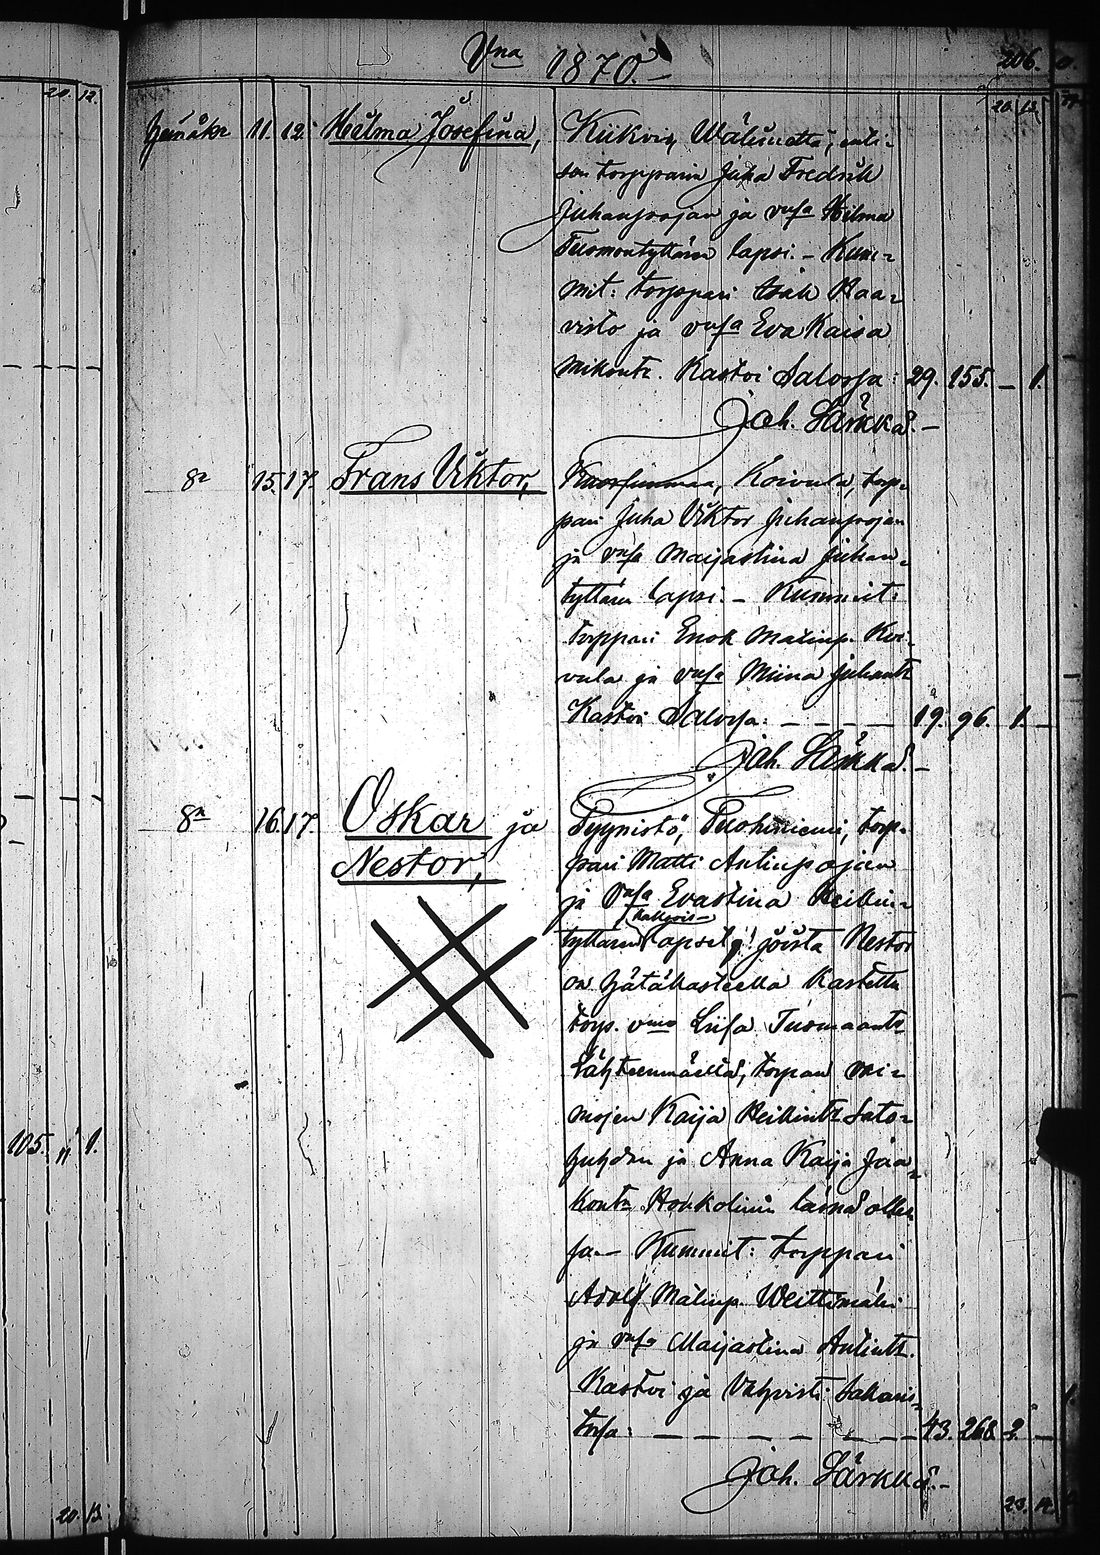 Vna 1870.
206.
20. 12.
20. 12.
11. 12. Hilma Josefina, Kiikvin,
son torpparin Juha Fredrik
Juhanpojan ja vmsa Hilma
Tuomontyttären lapsi. – Kum-
mit: torppari Isak Haa-
visto ja vmsa Eva Kaisa
Mikontr. Kastoi Salossa: 29. 155. – 1.
Joh. Särkkä. –
15. 17. Frans Viktor, Koivula, torp-
pari Juha Viktor Juhanpojan
ja vmsa Maijastina Juhan-
tyttären lapsi. – Kummit:
torppari Enok Matinp. Koi-
vula ja vmsa Miina Juhantr
Kastoi Salossa: – – – – 19. 96. 1. –
Joh. Särkkä. –
16. 17. Oskar ja Tyynistö, Tuohiniemi, torp-
Nestor, pari Matti Antinpojan
ja vmsa Evastina Heikin-
tyttären lapset, joista Nestor
on hätäkasteella kastettu
torp. vmo Liisa Tuomaantr
Lähteenmäeltä, torpan vai-
mojen Kaija Heikintr Sato-
huhdan ja Anna Kaija Jaa-
kontr Honkolinin läsnä ollen
sa – Kummit: torppari
Adolf Matinp. Weittimäki
ja vmsa Maijastina Antintr.
Kastoi ja Vahvisti Sakaris-
tossa: – – – – – – – 43. 268 2. –
Joh. Särkkä. –
105. " 1.
20. 13.
23. 14.